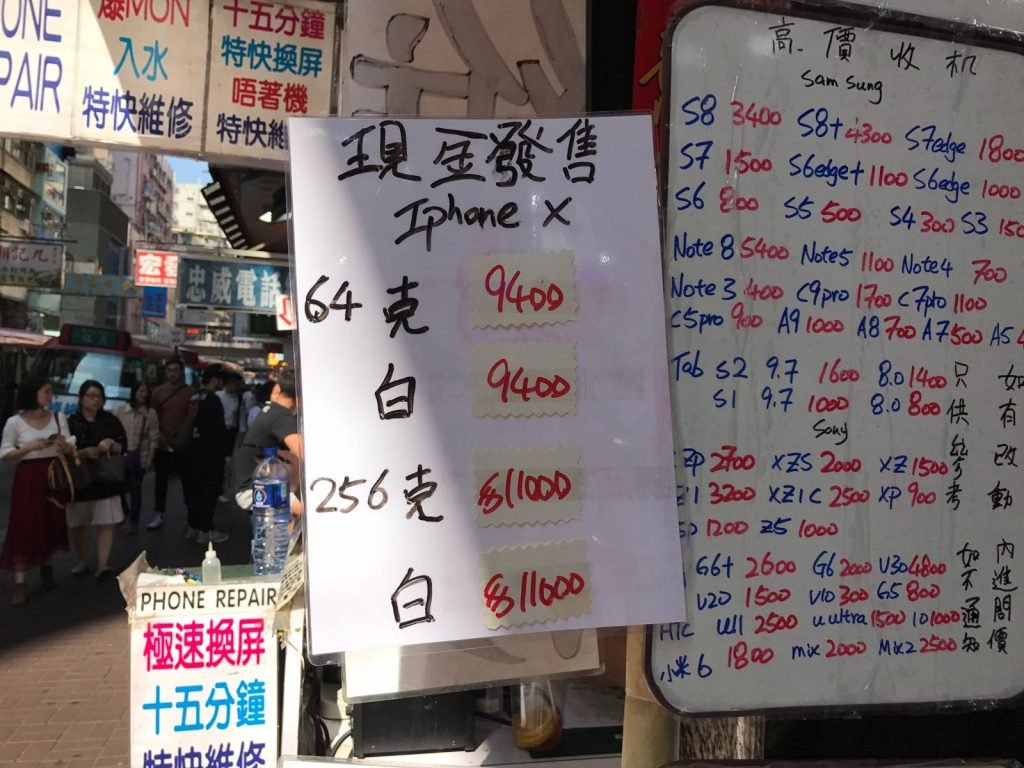 ONE
PAIR
爆MON
入水
特快維修
十五分鐘
特快換屏
唔著機
特快維
現金發售
Iphone X
64 克 9400
白 9400
256 克 11000
白 11000
宏發
忠威電話
PHONE REPAIR
極速換屏
十五分鐘
特快維修
高價收机
Samsung
S8 3400 S8+ 4300 S7edge 1800
S7 1500 S6edge+ 1100 S6edge 1000
S6 800 S5 500 S4 300 S3 150
Note 8 5400 Note5 1100 Note4 700
Note 3 400 C9pro 1700 C7pro 1100
C5pro 900 A9 1000 A8 700 A7 500 A5 4
Tab S2 9.7 1600 8.0 1400
S1 9.7 1000 8.0 800
Sony
ZP 2700 XZS 2000 XZ 1500
Z1 3200 XZ1C 2500 XP 900
1200 Z5 1000
G6+ 2600 G6 2000 V30 4800
V20 1500 V10 300 G5 800
HTC U11 2500 U ultra 1500 10 1000
小米6 1800 mix 2000 Mix2 2500
如有改動
只供參考
內進問價
如不通知